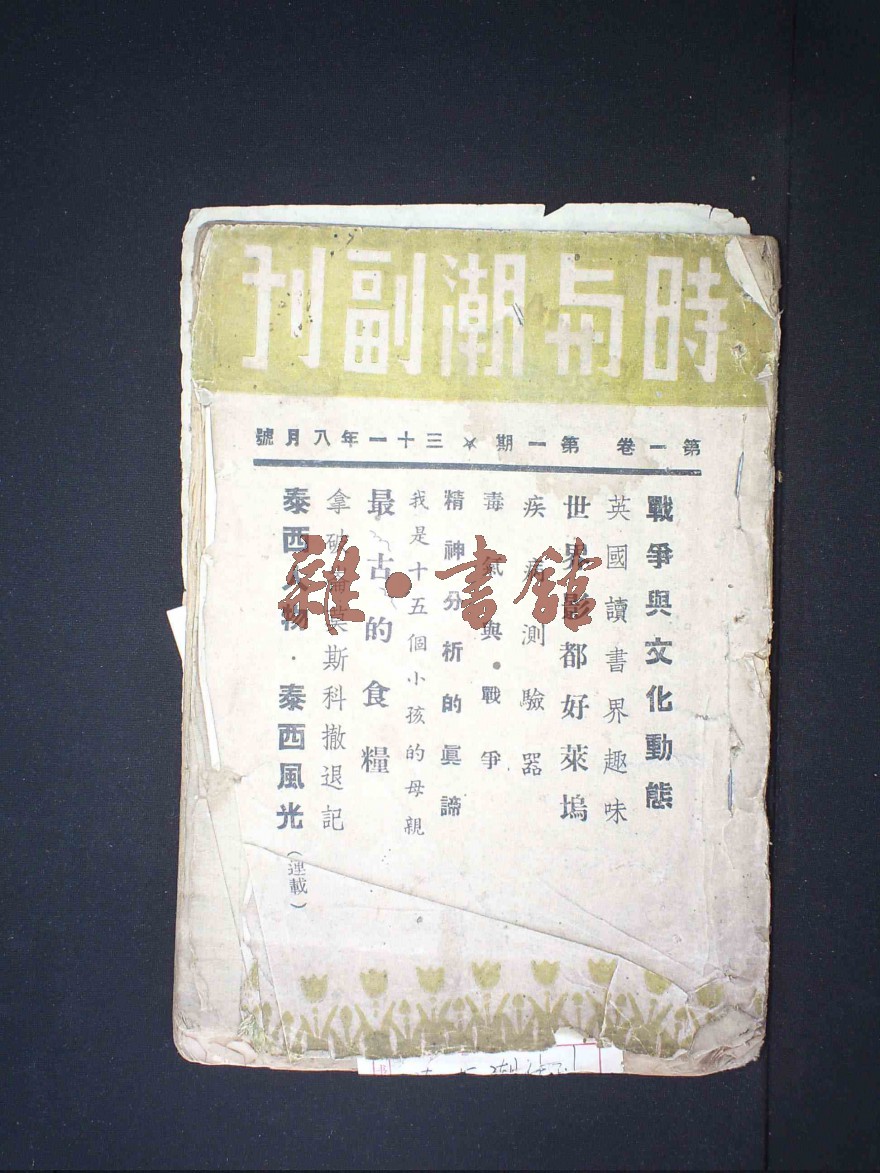 時與潮副刊
第一卷 第一期 ★ 三十一年八月號
戰爭與文化動態
英國讀書界趣味
世界影都好萊塢
疾病測驗器
毒氣與戰爭
精神分析的眞諦
我是十五個小孩的母親
最古的食糧
拿破崙莫斯科撤退記
泰西人物·泰西風光(連載)
雜·書館